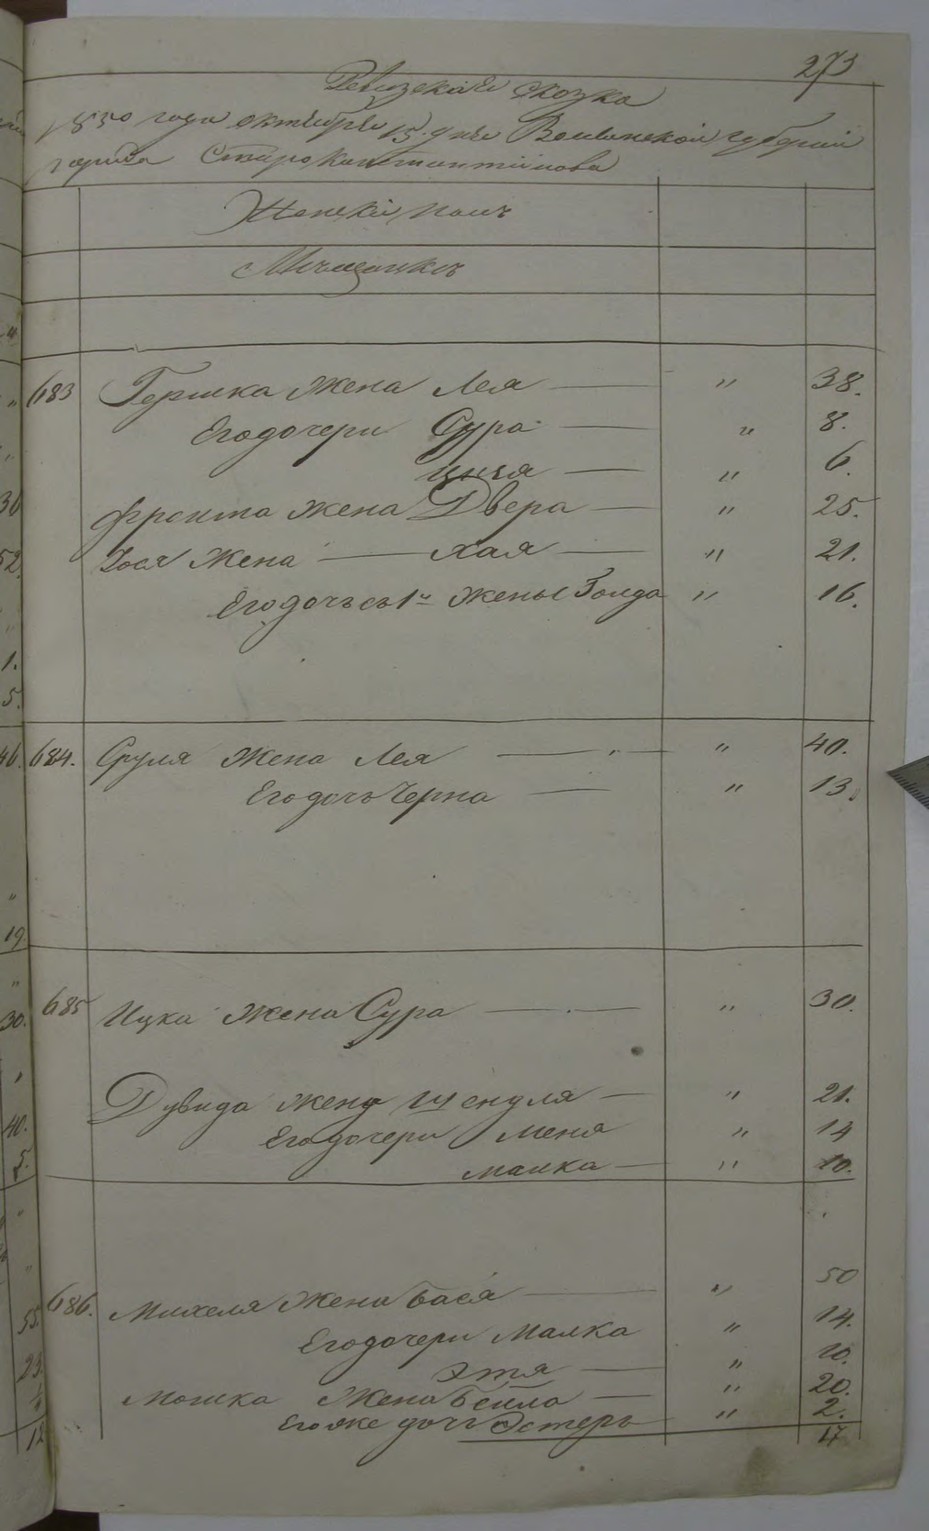 273
Ревизская сказка
1850 года октября 15 дня Волынской губернии
города Староконстантинова
Женскій полъ
Мещанкъ
683 Гершка жена Лея — " 38.
Его дочери Сура — " 8.
— " 6.
жена Двера — " 25.
Иося жена — Хая — " 21.
Его дочь съ 1й жены Голда " 16.
684. Сруля жена Лея — " 40.
Его дочь Черна — " 13.
685 Ицка жена Сура — " 30.
Дувида жена Шендля — " 21.
Его дочери Меня " 14
Малка — " 10.
686. Михеля жена Бася — " 50
Его дочери Малка " 14.
Этя — " 10.
Мошка жена Бейла — " 20.
Его же дочь Эстеръ " 2.
17